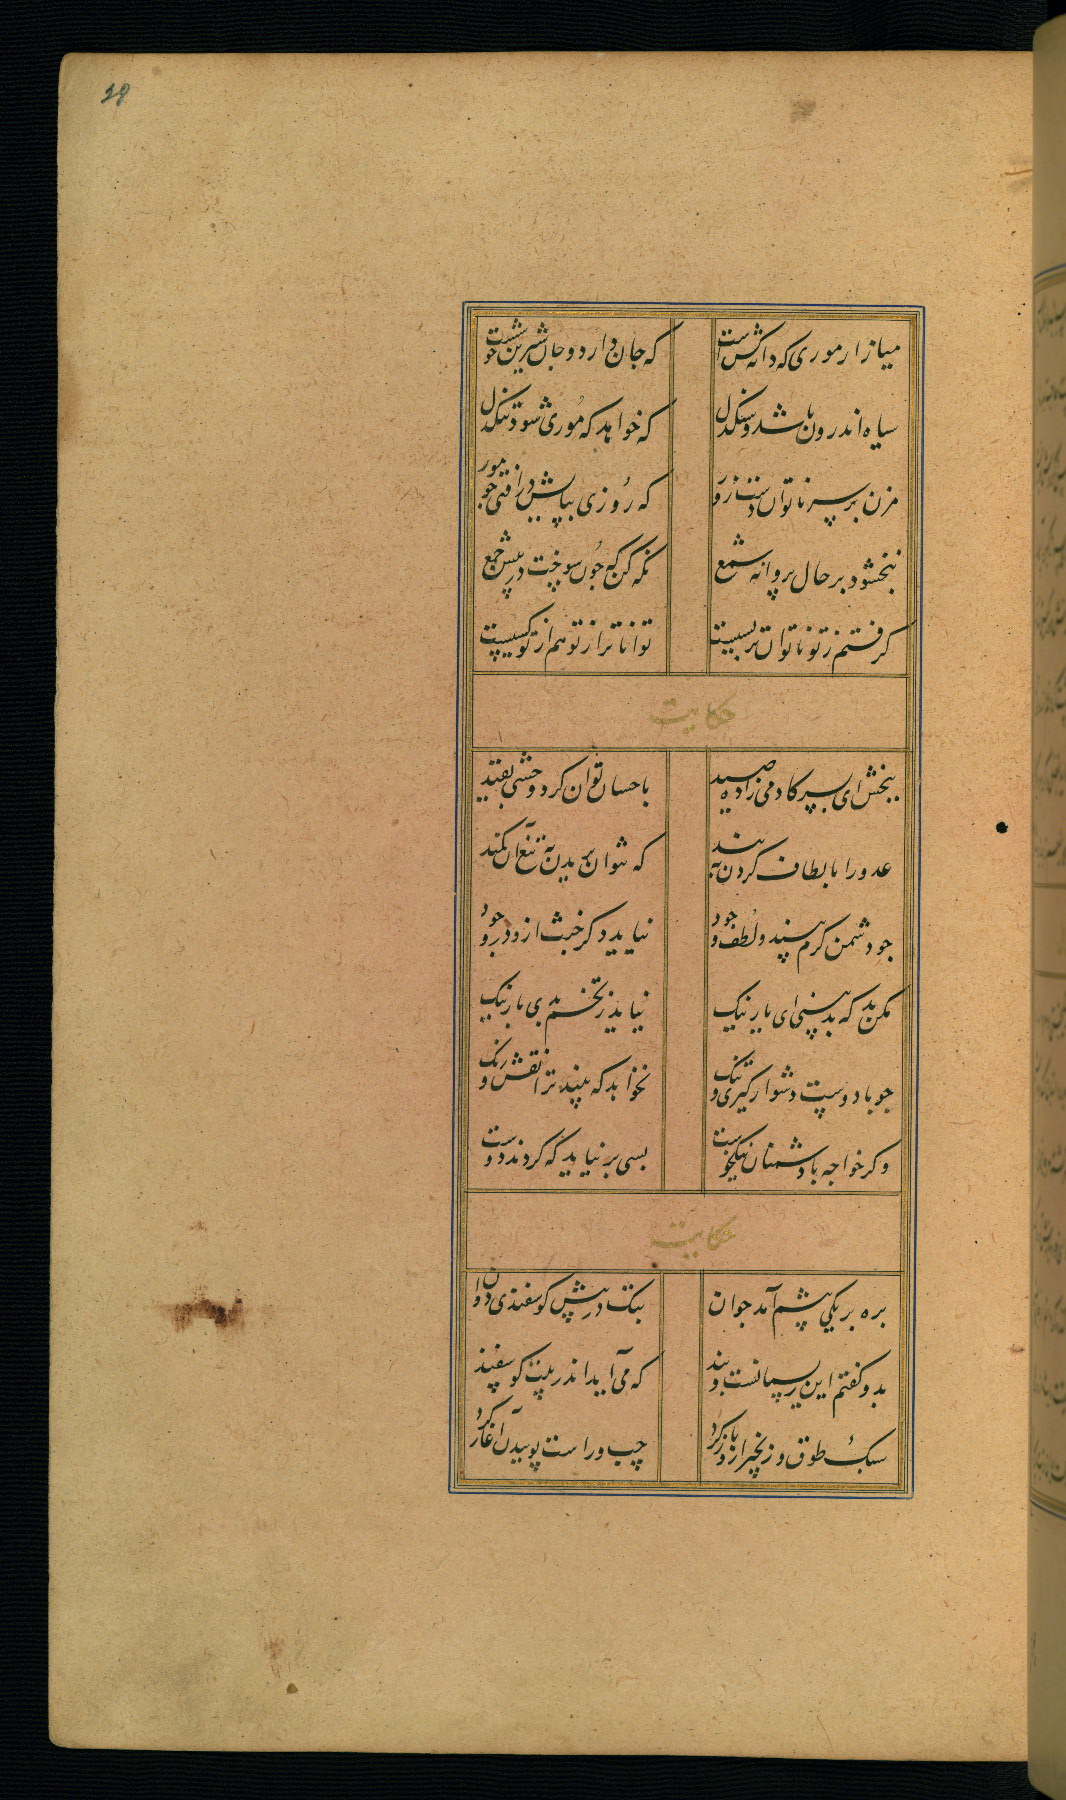 28
میازار موری که دانه کش است که جان دارد و جان شیرین خوش است
سیاه اندرون باشد و سنکدل که خواهد که موری شود تنکدل
مزن بر سر ناتوان دست زور که روزی بپایش در افتی جو مور
نبخشود بر حال پروانه شمع نکه کن که جون سوخت در پیش جمع
کرفتم ز تو ناتوان تر بسیست تواناتر از تو هم از تو کسیست
حکایت
ببخش ای پسر کادمی زاده صید باحسان توان کرد و وحشی بقید
عدو را بالطاف کردن به بند که نتوان بریدن به تیغ آن کمند
جو دشمن کرم بیند و لطف و جود نیاید دکر خبث ازو در وجود
مکن بد که بد بینی ای یار نیک نیاید ز تخم بدی بار نیک
جو با دوست دشوار کیری و تنک نخواهد که بیند ترا نقش و رنک
وکر خواجه با دشمنان نیکخوست بسی بر نیاید که کردند دوست
حکایت
بره بر یکی پیشم آمد جوان بتک در پیش کوسفندی دوان
بدو کفتم این ریسمانست و بند که می آید اندر پیت کوسفند
سبک طوق و زنجیر ازو باز کرد چپ و راست پوییدن آغاز کرد